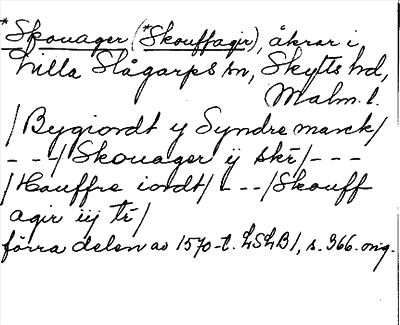 *Skouager (*Skouffagir), åkrar i
Lilla Slågarps sn, Skytts hd,
Malm. l.
/Bygiordt y Syndre marck/
- - -/Skouager ÿ skr̄/- - -
/Hauffre iordt/ - - -/Skouff
agir iij tr̄/
förra delen av 1570-t. LSLB1, s. 366. orig.